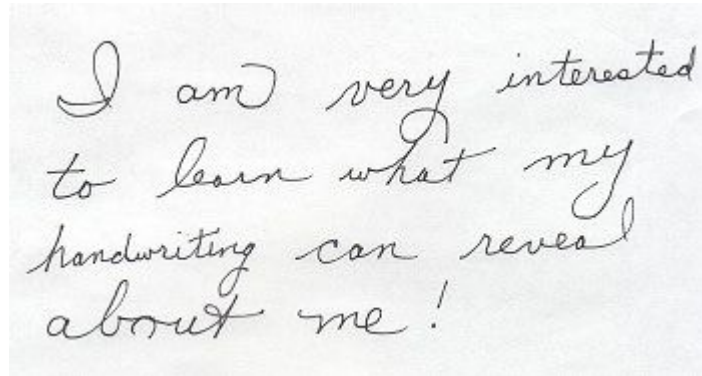 I am very interested
to learn what my
handwriting can reveal
about me!